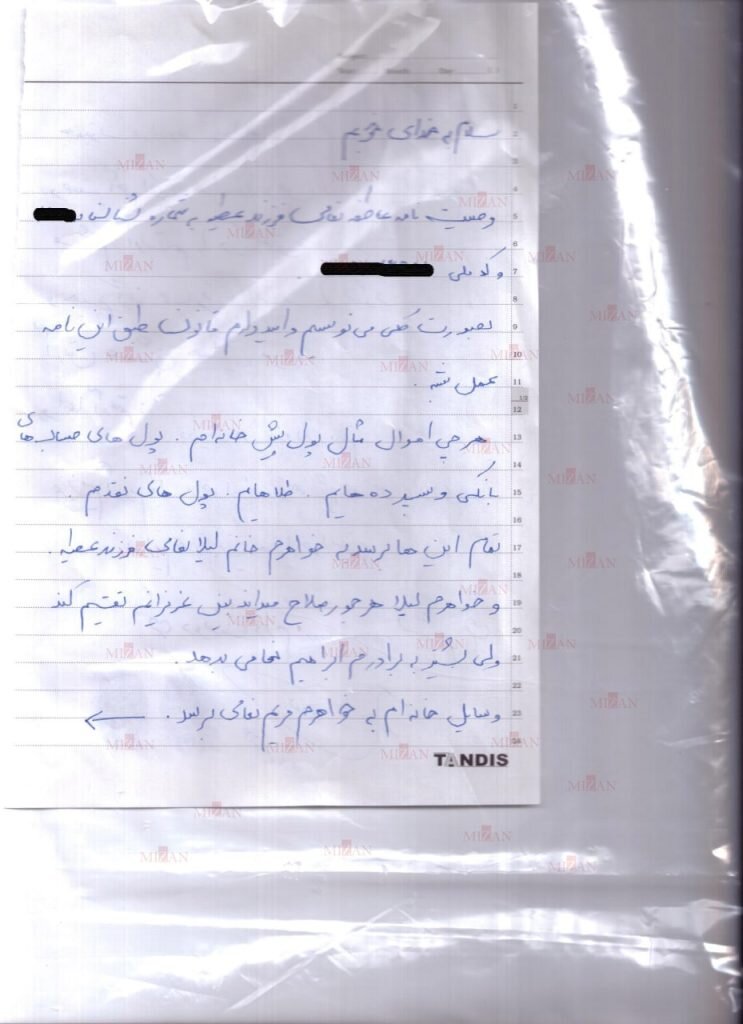 سلام به خدای خوبم
وصیت نامه عاطفه نعامی فرزند عطیه به شماره شناسنامه
و کد ملی
بصورت کلی می نویسم و امیدوارم قانون طبق این نامه
عمل کنه .
هر چی اموال مثال پول پیش خانه ام . پول های حساب های
بانکی و سپرده هایم . طلاهایم . پول های نقدم .
تمام این ها برسد به خواهرم خانم لیلا نعامی فرزند عطیه .
و خواهرم لیلا هر جور صلاح میداند بین عزیزانم تقسیم کند
ولی بیشتر به برادرم ابراهیم نعامی بدهد .
وسایل خانه ام به خواهرم مریم نعامی برسد . ←
TANDIS
MIZAN